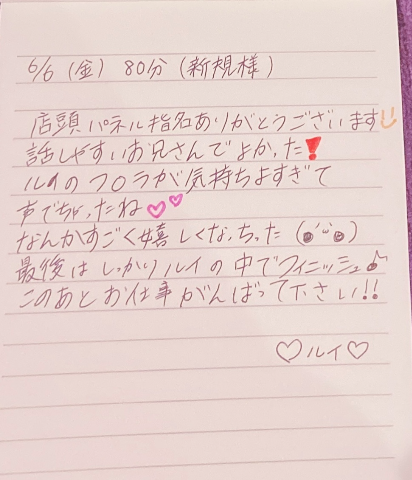 6/6 (金) 80分 (新規様)
店頭パネル指名ありがとうございます
話しやすいお兄さんでよかった❗
ルイのフ○ラが気持ちよすぎて
声でちゃったね♡♡
なんかすごく嬉しくなっちった (●'ω'●)
最後はしっかりルイの中でフィニッシュ♪
このあとお仕事がんばって下さい!!
♡ルイ♡